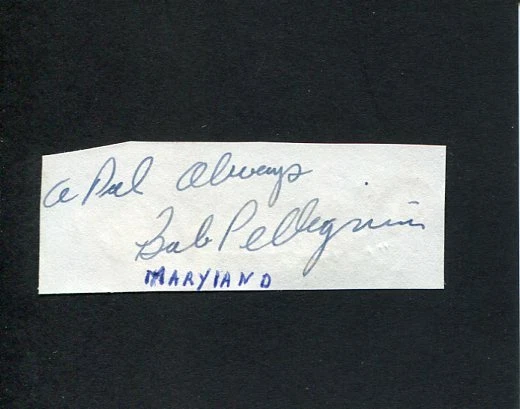 a Pal Always
Bob Pellegrini
MARYLAND